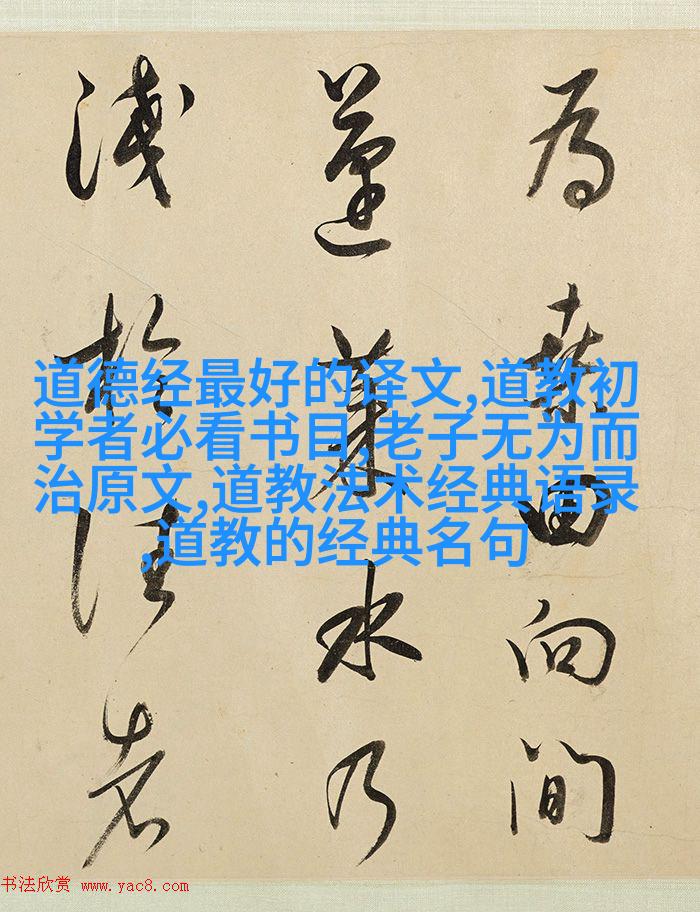 為桑田向間
蓬萊水乃
淺於往者
道德经最好的译文,道教初
学者必看书目,老子无为而
治原文,道教法术经典语录
,道教的经典名句
书法欣赏 www.yac8.com